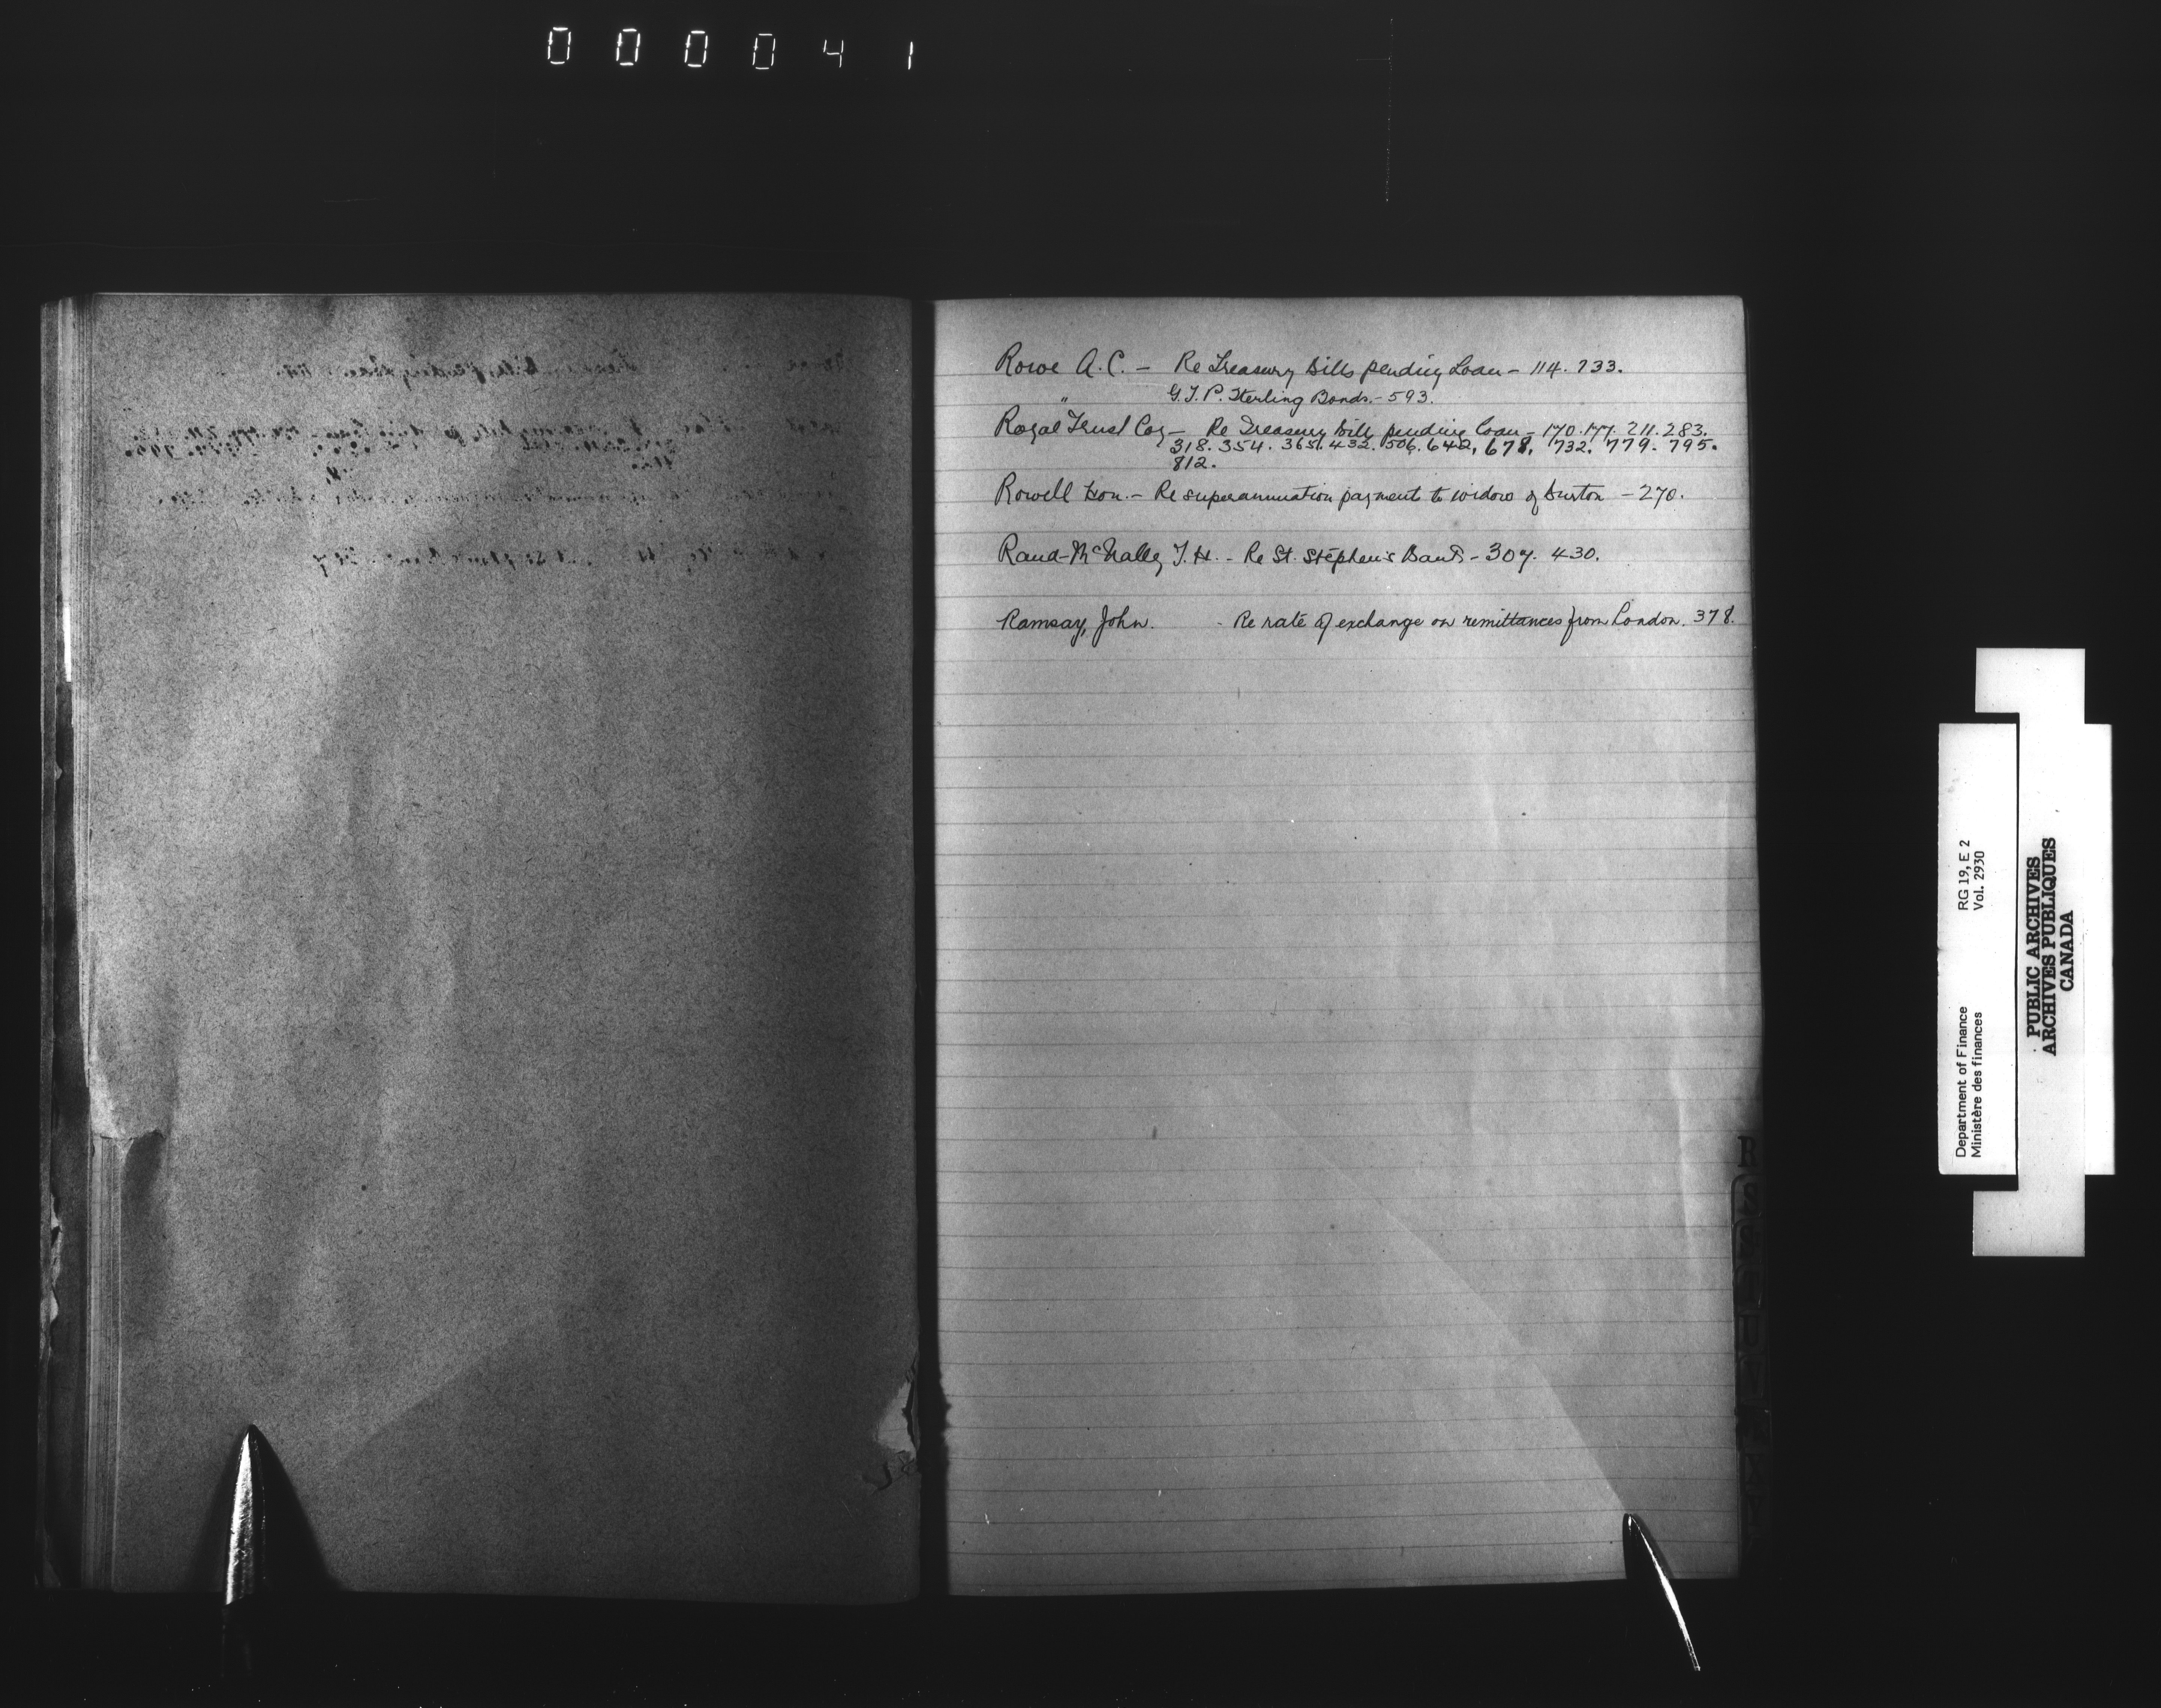 000041
Rowe A.C. — Re Treasury bills pending Loan — 114. 733.
" G.T.P. Sterling Bonds. — 593.
Royal Trust Coy — Re Treasury bills pending loan — 170. 177. 211. 283.
318. 354. 365. 432. 506. 642. 678. 732. 779. 795.
812.
Rowell Hon. — Re superannuation payment to widow of Burton — 270.
Rand-McNally T.H. - Re St. Stephen's Bank - 307. 430.
Ramsay, John. - Re rate of exchange on remittances from London. 378.
R
S
Department of Finance RG 19, E 2
Ministère des finances Vol. 2930
PUBLIC ARCHIVES
ARCHIVES PUBLIQUES
CANADA